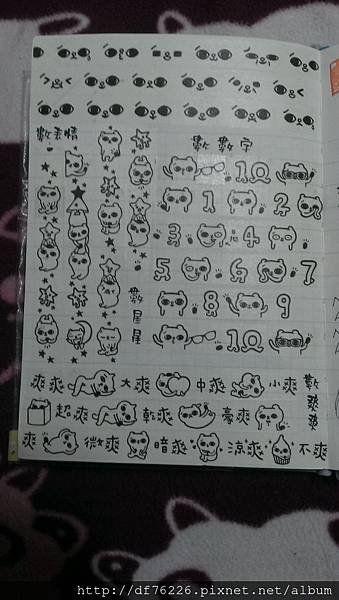 數表情
數數字
10
1 2
3 4
5 6 7
8 9
10
數星星
爽爽 大爽 中爽 小爽
超爽 乾爽 豪爽
爽 微爽 暗爽 涼爽 不爽
數爽爽
http://df76226.pixnet.net/album